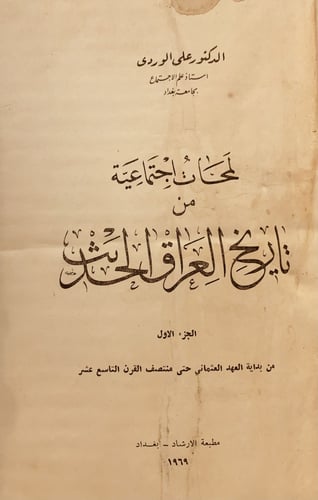 الدكتور علي الوردي
استاذ علم الاجتماع
بجامعة بغداد
لمحات اجتماعية
من
تاريخ العراق الحديث
الجزء الاول
من بداية العهد العثماني حتى منتصف القرن التاسع عشر
مطبعة الارشاد - بغداد
١٩٦٩